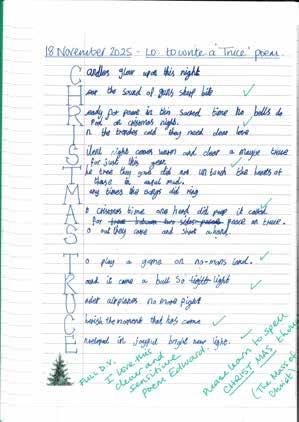 18 November 2025 - LO: to write a "Truce" poem.
Candles glow upon this night
Hear the sound of guns that bite
Ready for peace in this sacred time no balls do
on chrismas night.
In the trenches cold they need dear love
Silent night comes warm and clear a maybe truce
for just this year.
The tree they did not un touch the hearts of
those in mud.
Many times the did ring
To chrisomas time one hand did it
for peace or truce.
So out they came and shook a hand.
To play a game on no-mans land.
Rolled it came a ball So light
Under airplanes no more fight
Cherish the moment that has come
Enveloped in joyful bright new light.
Full D.V.
I love this
clever and
sensitive
poem Edward.
Please learn to spell
CHRIST MAS
(The Mass of
Christ)